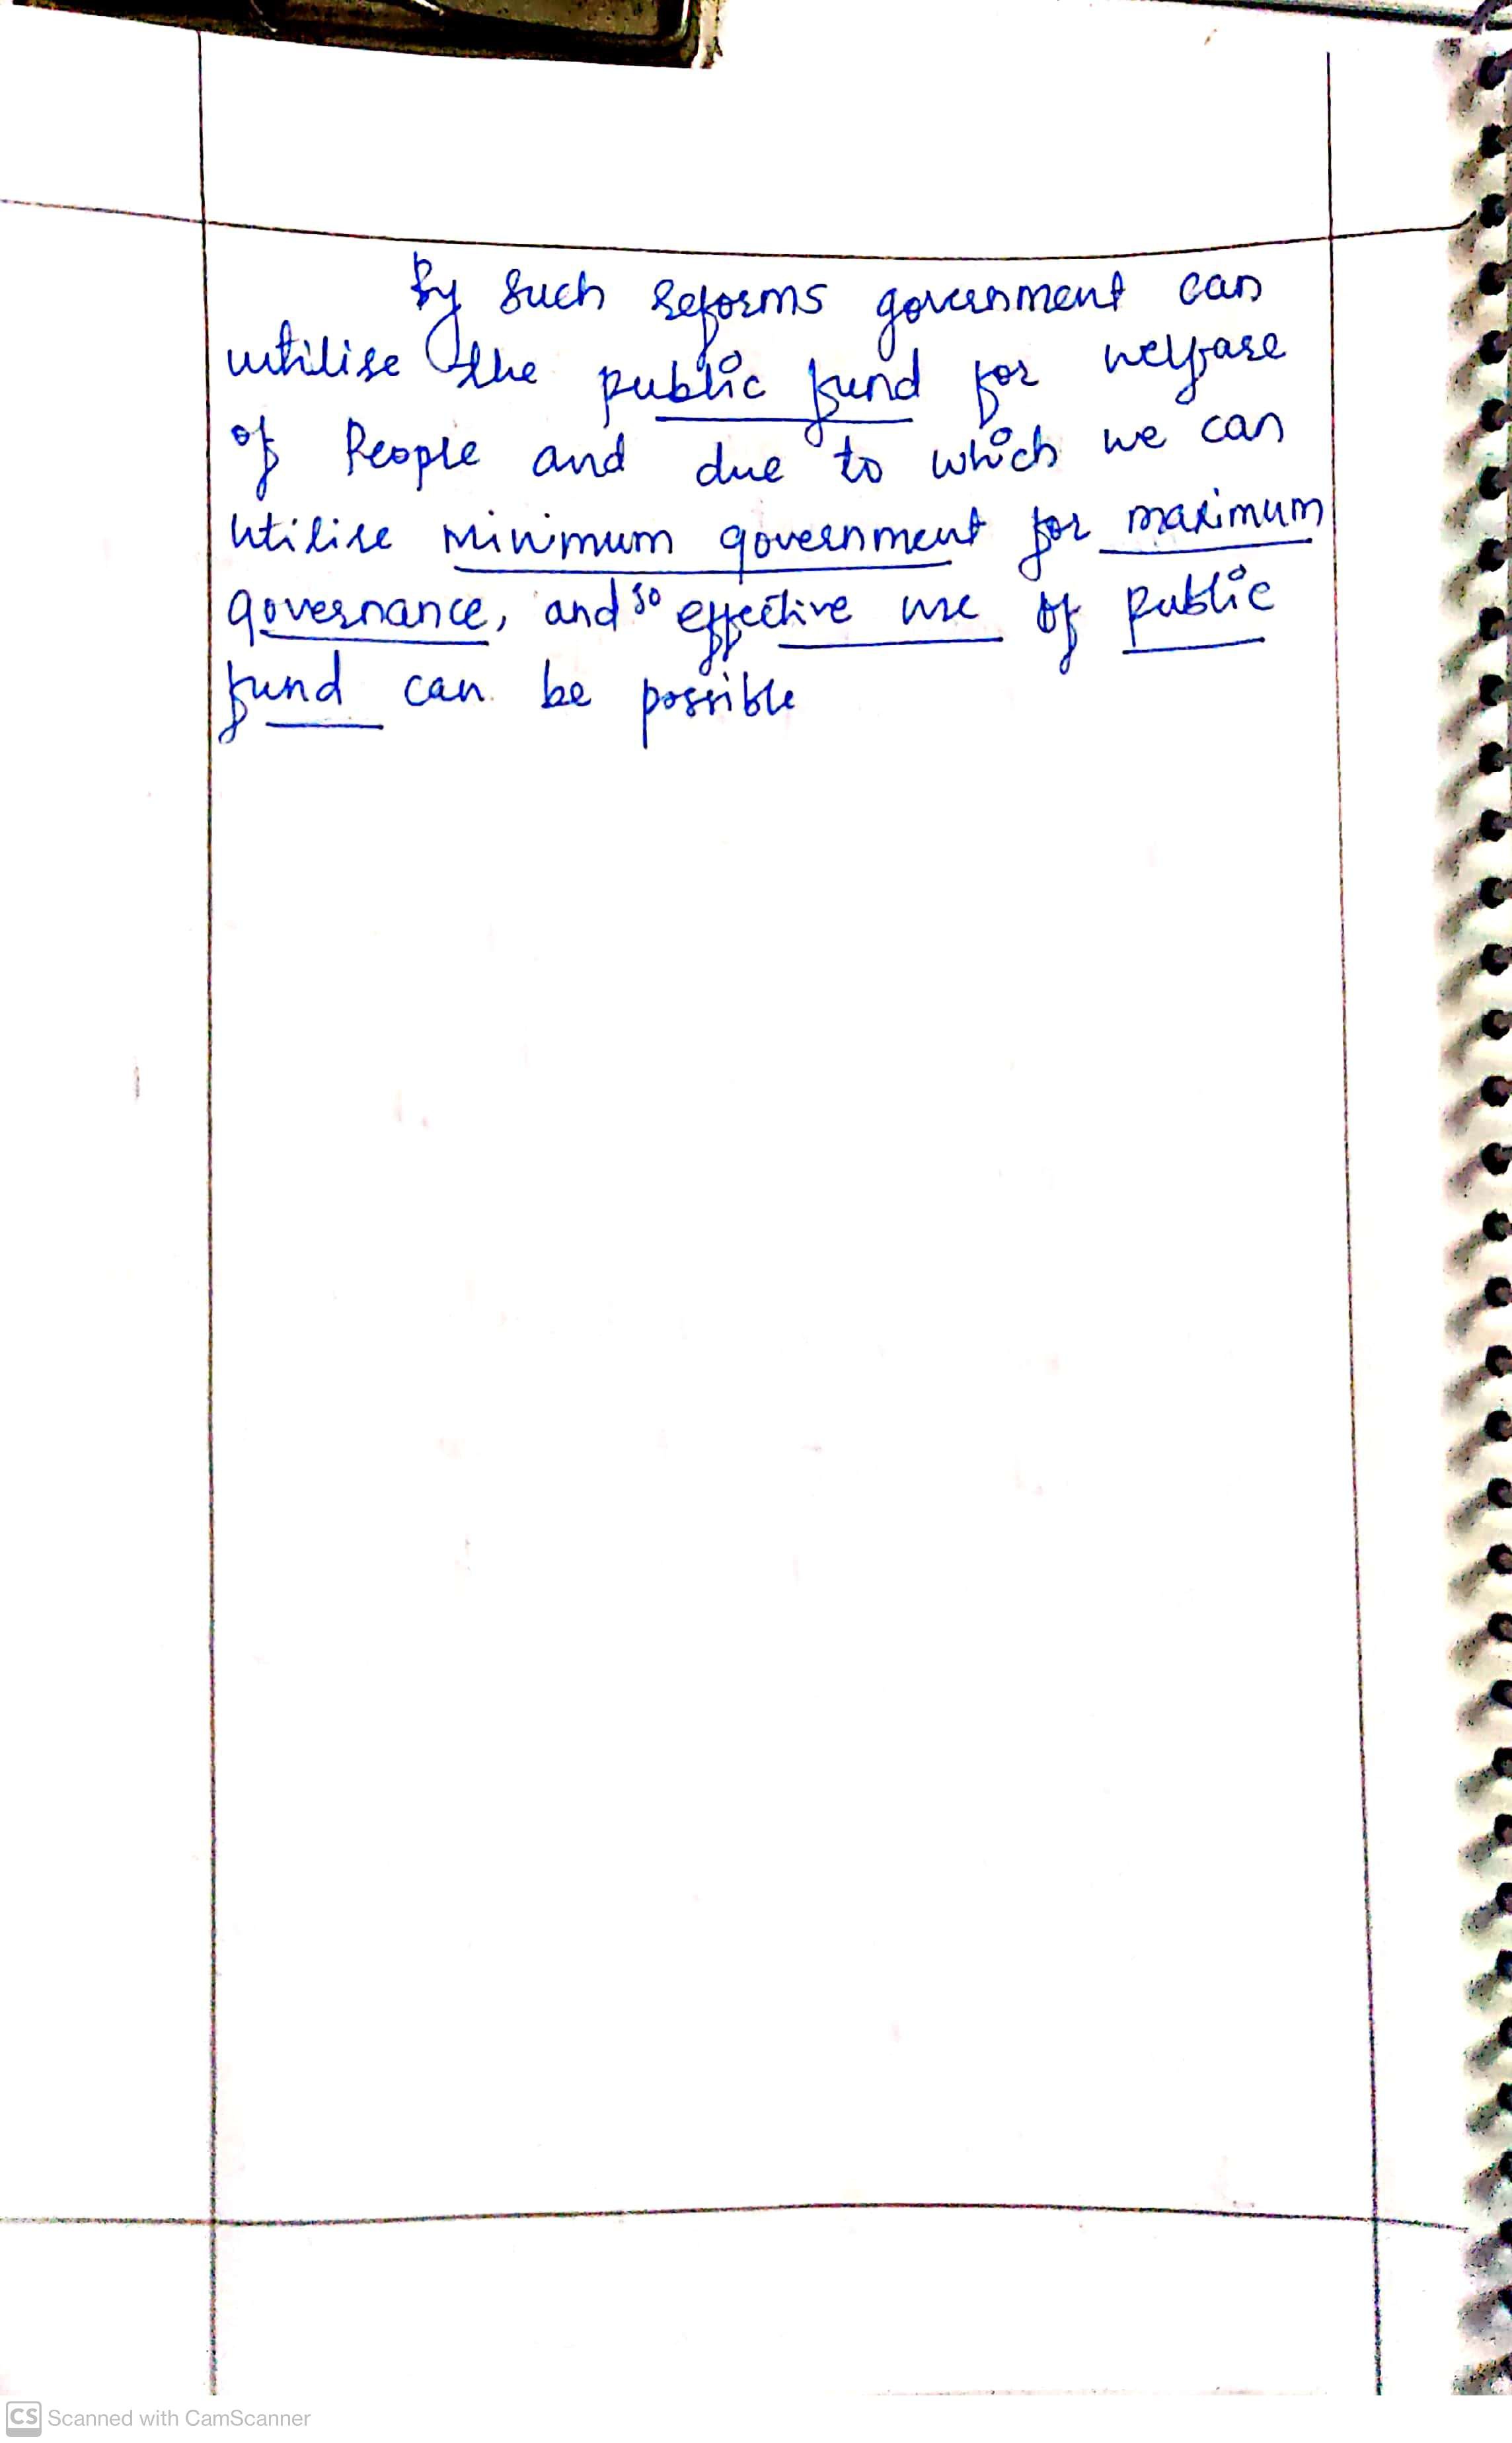 By such reforms government can
utilise the public fund for welfare
of People and due to which we can
utilise minimum government for maximum
governance, and so effective use of public
fund can be possible
CS Scanned with CamScanner